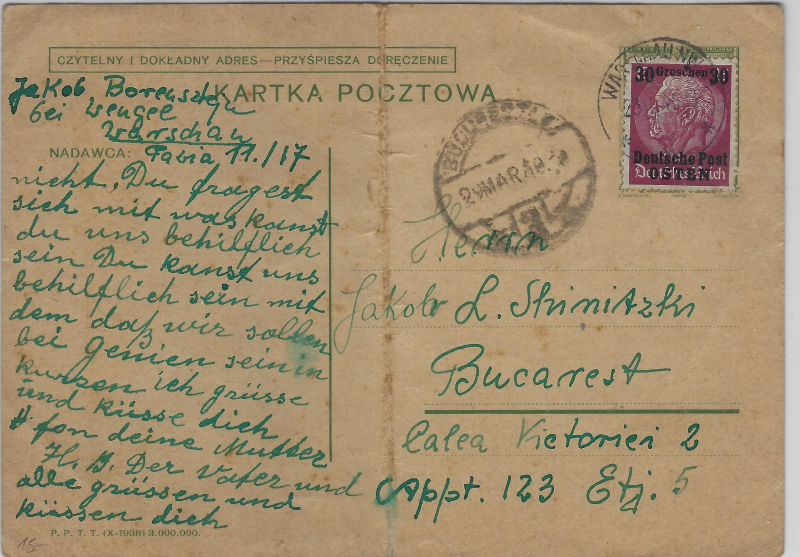 CZYTELNY I DOKŁADNY ADRES — PRZYŚPIESZA DORĘCZENIE
KARTKA POCZTOWA
Jakob Borensztejn
bei Wengel
Warschau
NADAWCA: Pawia 11./17
nicht, Du fragest
sich mit was kanst
du uns behilflich
sein Du kanst uns
behilflich sein mit
dem daß wir sollen
bei genien sein in
kurzen ich grüsse
und küsse dich
fon deine Mutter
H. B. Der Vater und
alle grüssen und
küssen dich
P. P. T. T. (X-1938) 3.000.000.
15-
30 Groschen 30
Deutsche Post
OSTEN
Deutsches Reich
WARSCHAU
BUCUREȘTI
29 MAR. 40
Herrn
Jakob L. Skinitzki
Bucarest
Calea Victoriei 2
Appt. 123 Etj. 5